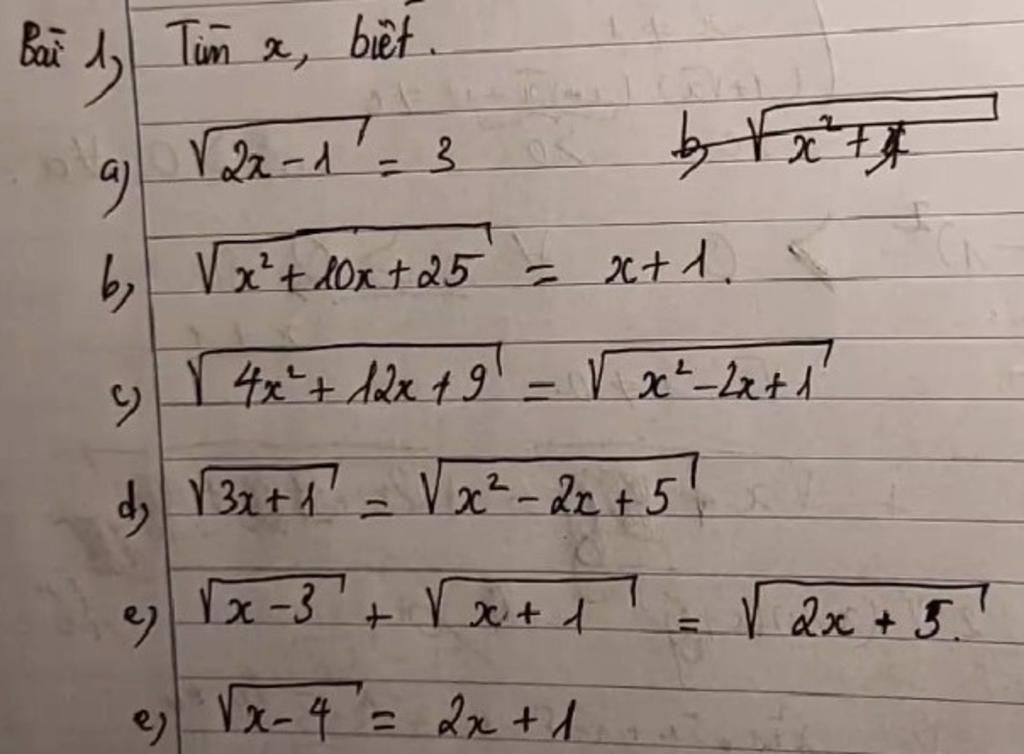 Bài 1) Tìm x, biết.
a) √(2x-1) = 3 b) √(x²+4)
b) √(x²+10x+25) = x+1.
c) √(4x²+12x+9) = √(x²-2x+1)
d) √(3x+1) = √(x²-2x+5)
e) √(x-3) + √(x+1) = √(2x+5).
e) √(x-4) = 2x+1